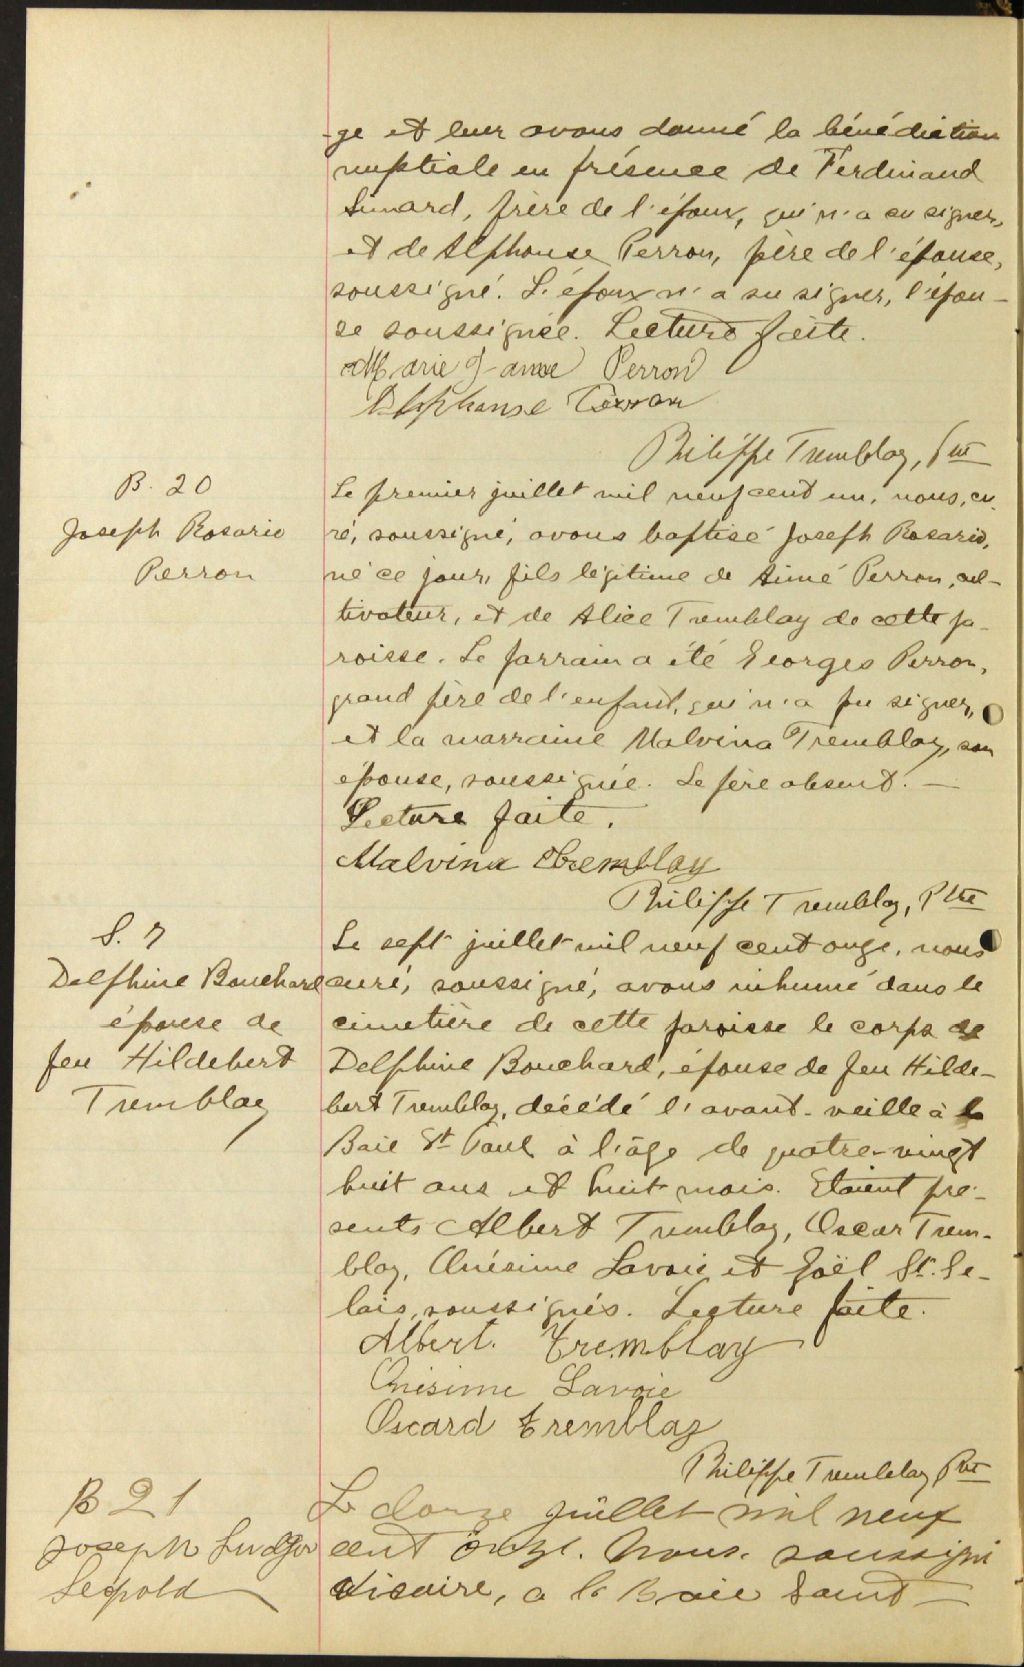 -ge et leur avons donné la bénédiction
nuptiale en présence de Ferdinand
Simard, frère de l'époux, qui n'a su signer,
et de Alphonse Perron, père de l'épouse,
soussigné. L'époux n'a su signer, l'épou-
se soussignée. Lecture faite.
Marie Jeanne Perron
Alphonse Perron
Philippe Tremblay, Ptre
B. 20
Joseph Rosario
Perron
Le premier juillet mil neuf cent un, nous, cu-
ré, soussigné, avons baptisé Joseph Rosario,
né ce jour, fils légitime de Aimé Perron, cul-
tivateur, et de Alice Tremblay de cette pa-
roisse. Le parrain a été Georges Perron,
grand père de l'enfant, qui n'a pu signer,
et la marraine Malvina Tremblay, son
épouse, soussignée. Le père absent. —
Lecture faite.
Malvina Tremblay
Philippe Tremblay, Ptre
S. 7
Delphine Bouchard
épouse de
feu Hildebert
Tremblay
Le sept juillet mil neuf cent onze, nous
curé, soussigné, avons inhumé dans le
cimetière de cette paroisse le corps de
Delphine Bouchard, épouse de feu Hilde-
bert Tremblay, décédé l'avant-veille à la
Baie St Paul à l'âge de quatre-vingt
huit ans et huit mois. Etaient pré-
sents Albert Tremblay, Oscar Trem-
blay, Onésime Lavoie et Joël St. Ge-
lais, soussignés. Lecture faite.
Albert. Tremblay
Onésime Lavoie
Oscard Tremblay
Philippe Tremblay Ptre
B 21
Joseph Ludger
Léopold
Le douze juillet mil neuf
cent onze. Nous. soussigné
vicaire, a la Baie Saint —